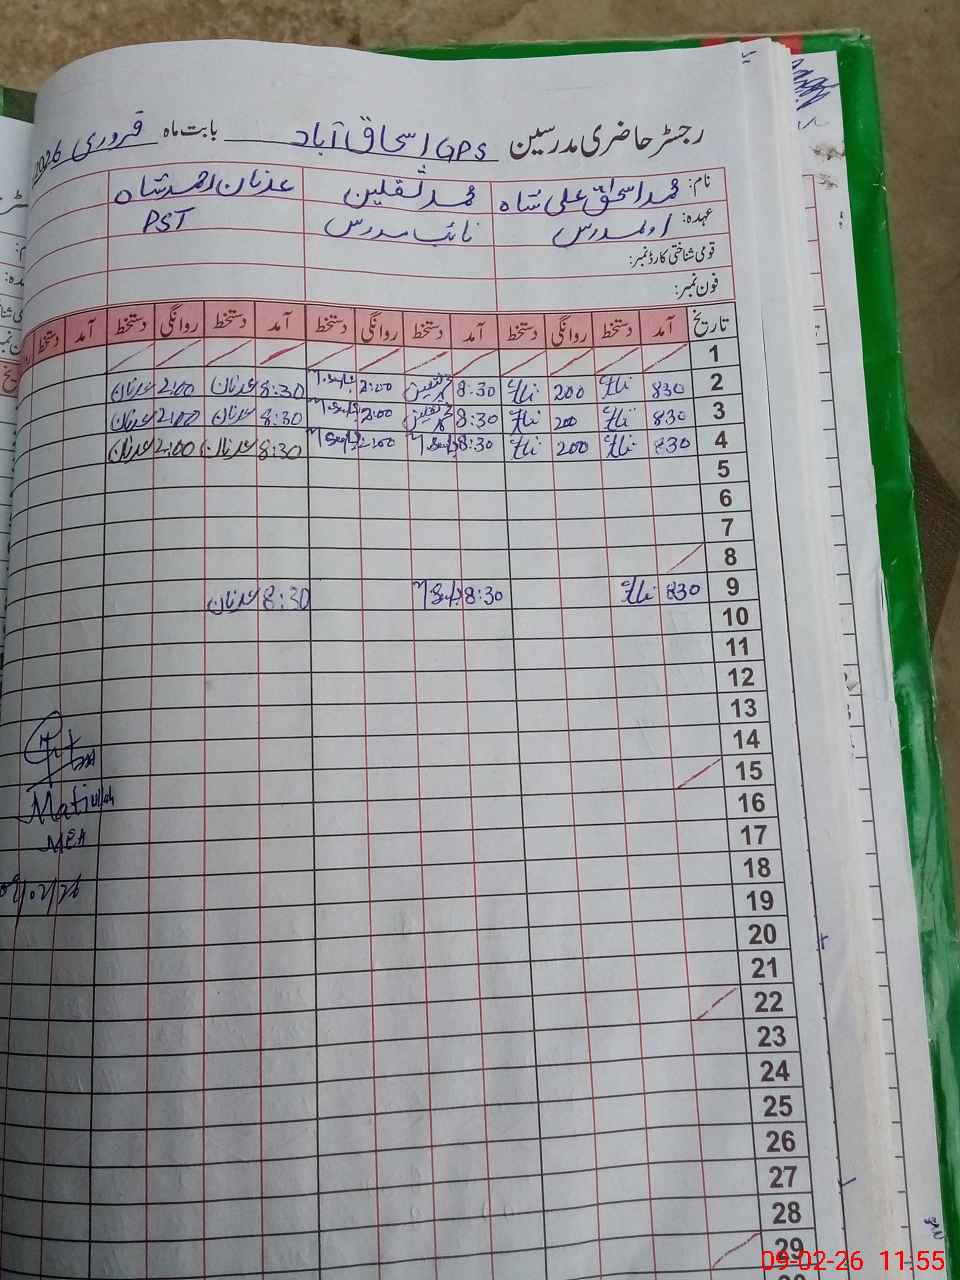 رجسٹر حاضری مدرسین GPS اسحاق آباد بابت ماہ فروری 2026
نام: محمد اسحق علی شاہ محمد ثقلین عدنان احمد شاہ
عہدہ: اول مدرس نائب مدرس PST
قومی شناختی کارڈ نمبر:
فون نمبر:
تاریخ آمد دستخط روانگی دستخط آمد دستخط روانگی دستخط آمد دستخط روانگی دستخط آمد دستخط
1
2 830 200 8:30 2:00 8:30 عدنان 2:00 عدنان
3 830 200 8:30 2:00 8:30 عدنان 2:00 عدنان
4 830 200 8:30 2:00 8:30 عدنان 2:00 عدنان
5
6
7
8
9 830 8:30 8:30 عدنان
10
11
12
13
14
15
16
Matiullah
17
MEA
18
09/02/26
19
20
21
22
23
24
25
26
27
28
29
09-02-26 11:55